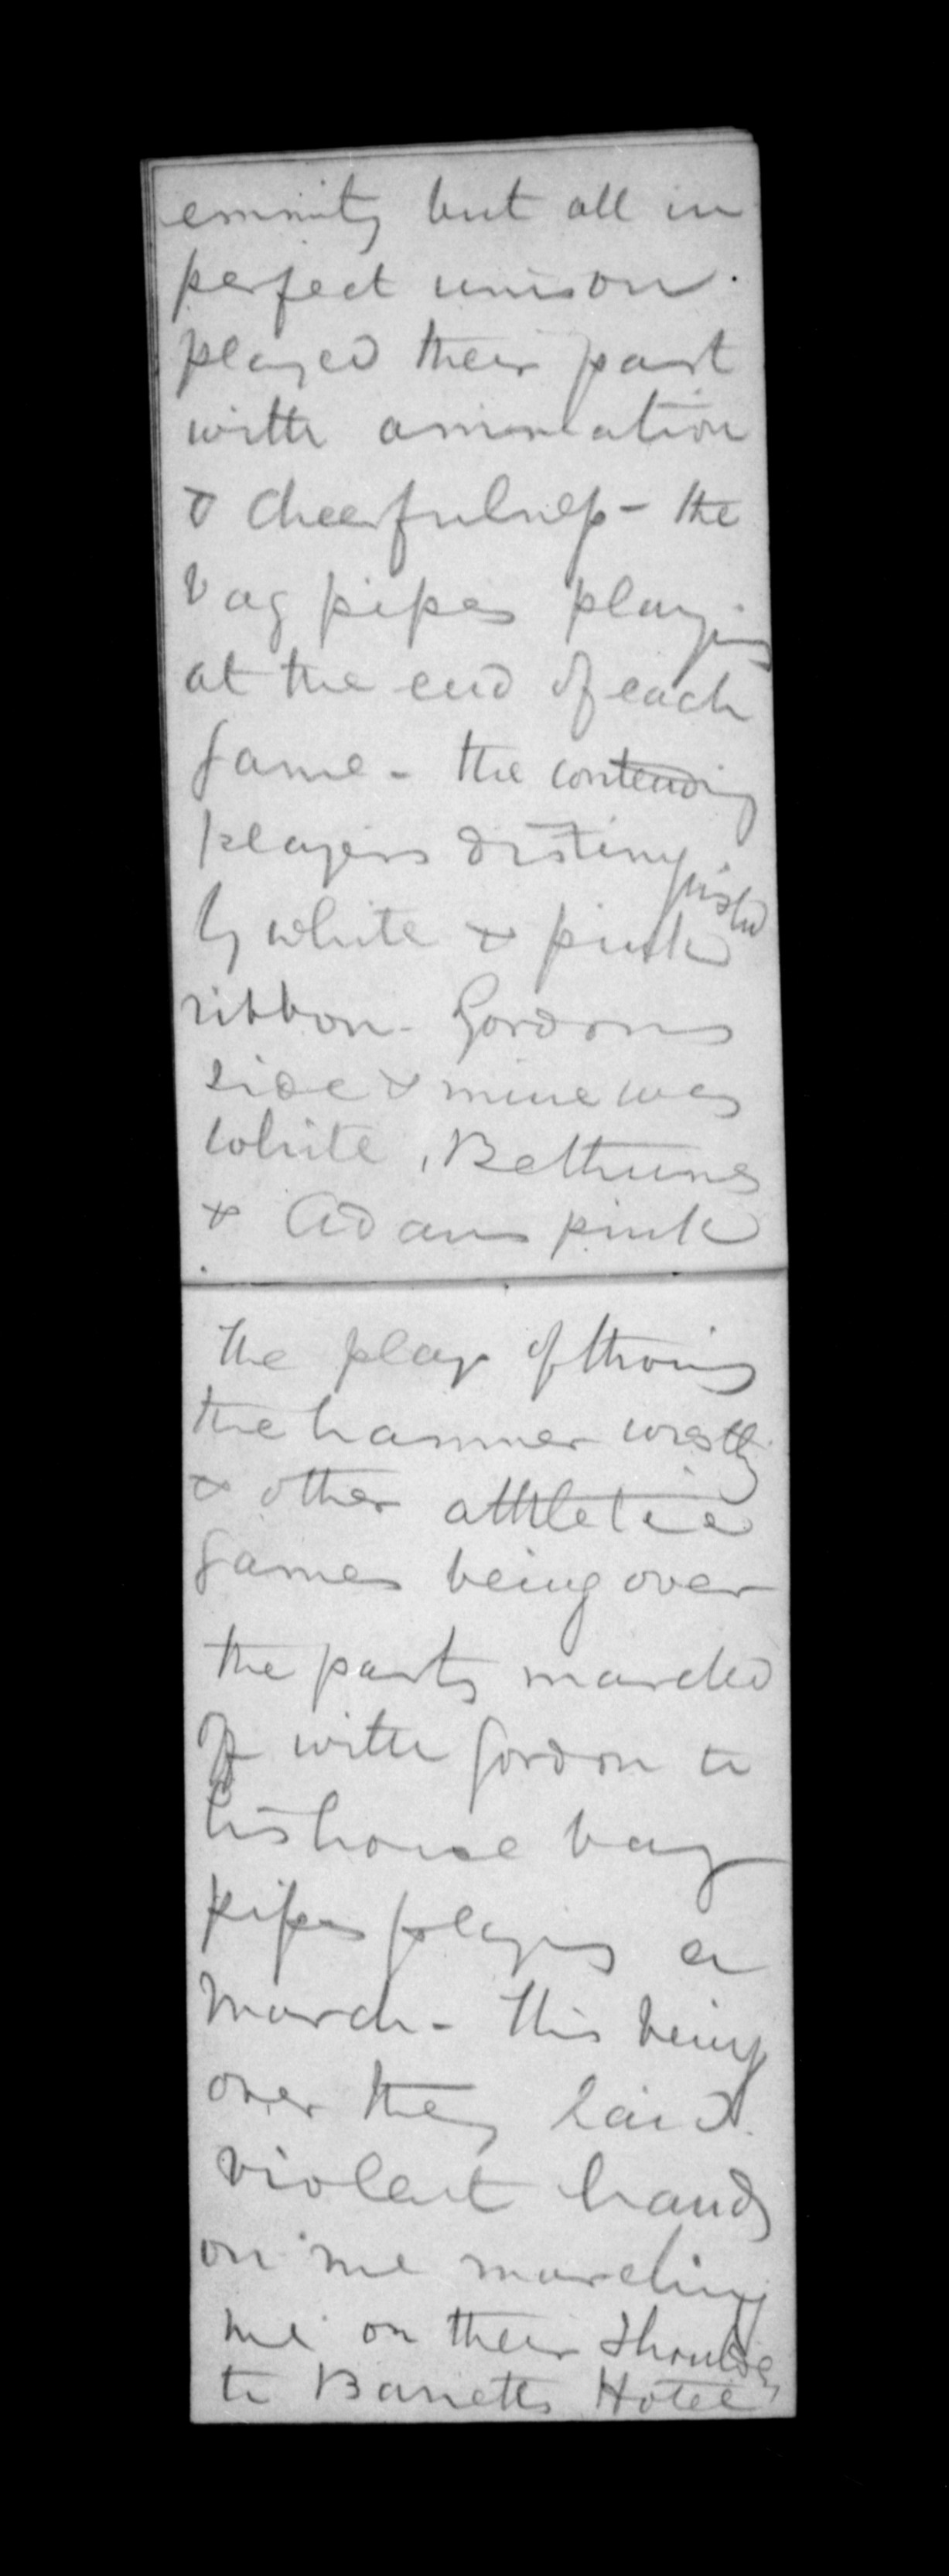 enmity but all in
perfect unison.
played their part
with animation
& cheerfulness - the
bag pipes playing
at the end of each
game - the contending
players distinguished
by white & pink
ribbon - Gordons
side & mine was
white, Bethunes
& Adams pink
the play of throing
the hammer wrestlg
& other athletic
games being over
the party marched
off with Gordon to
his house bag
pipes playing a
march - This being
over they laid
violent hands
on me marching
me on their shoulders
to Barretts Hotel